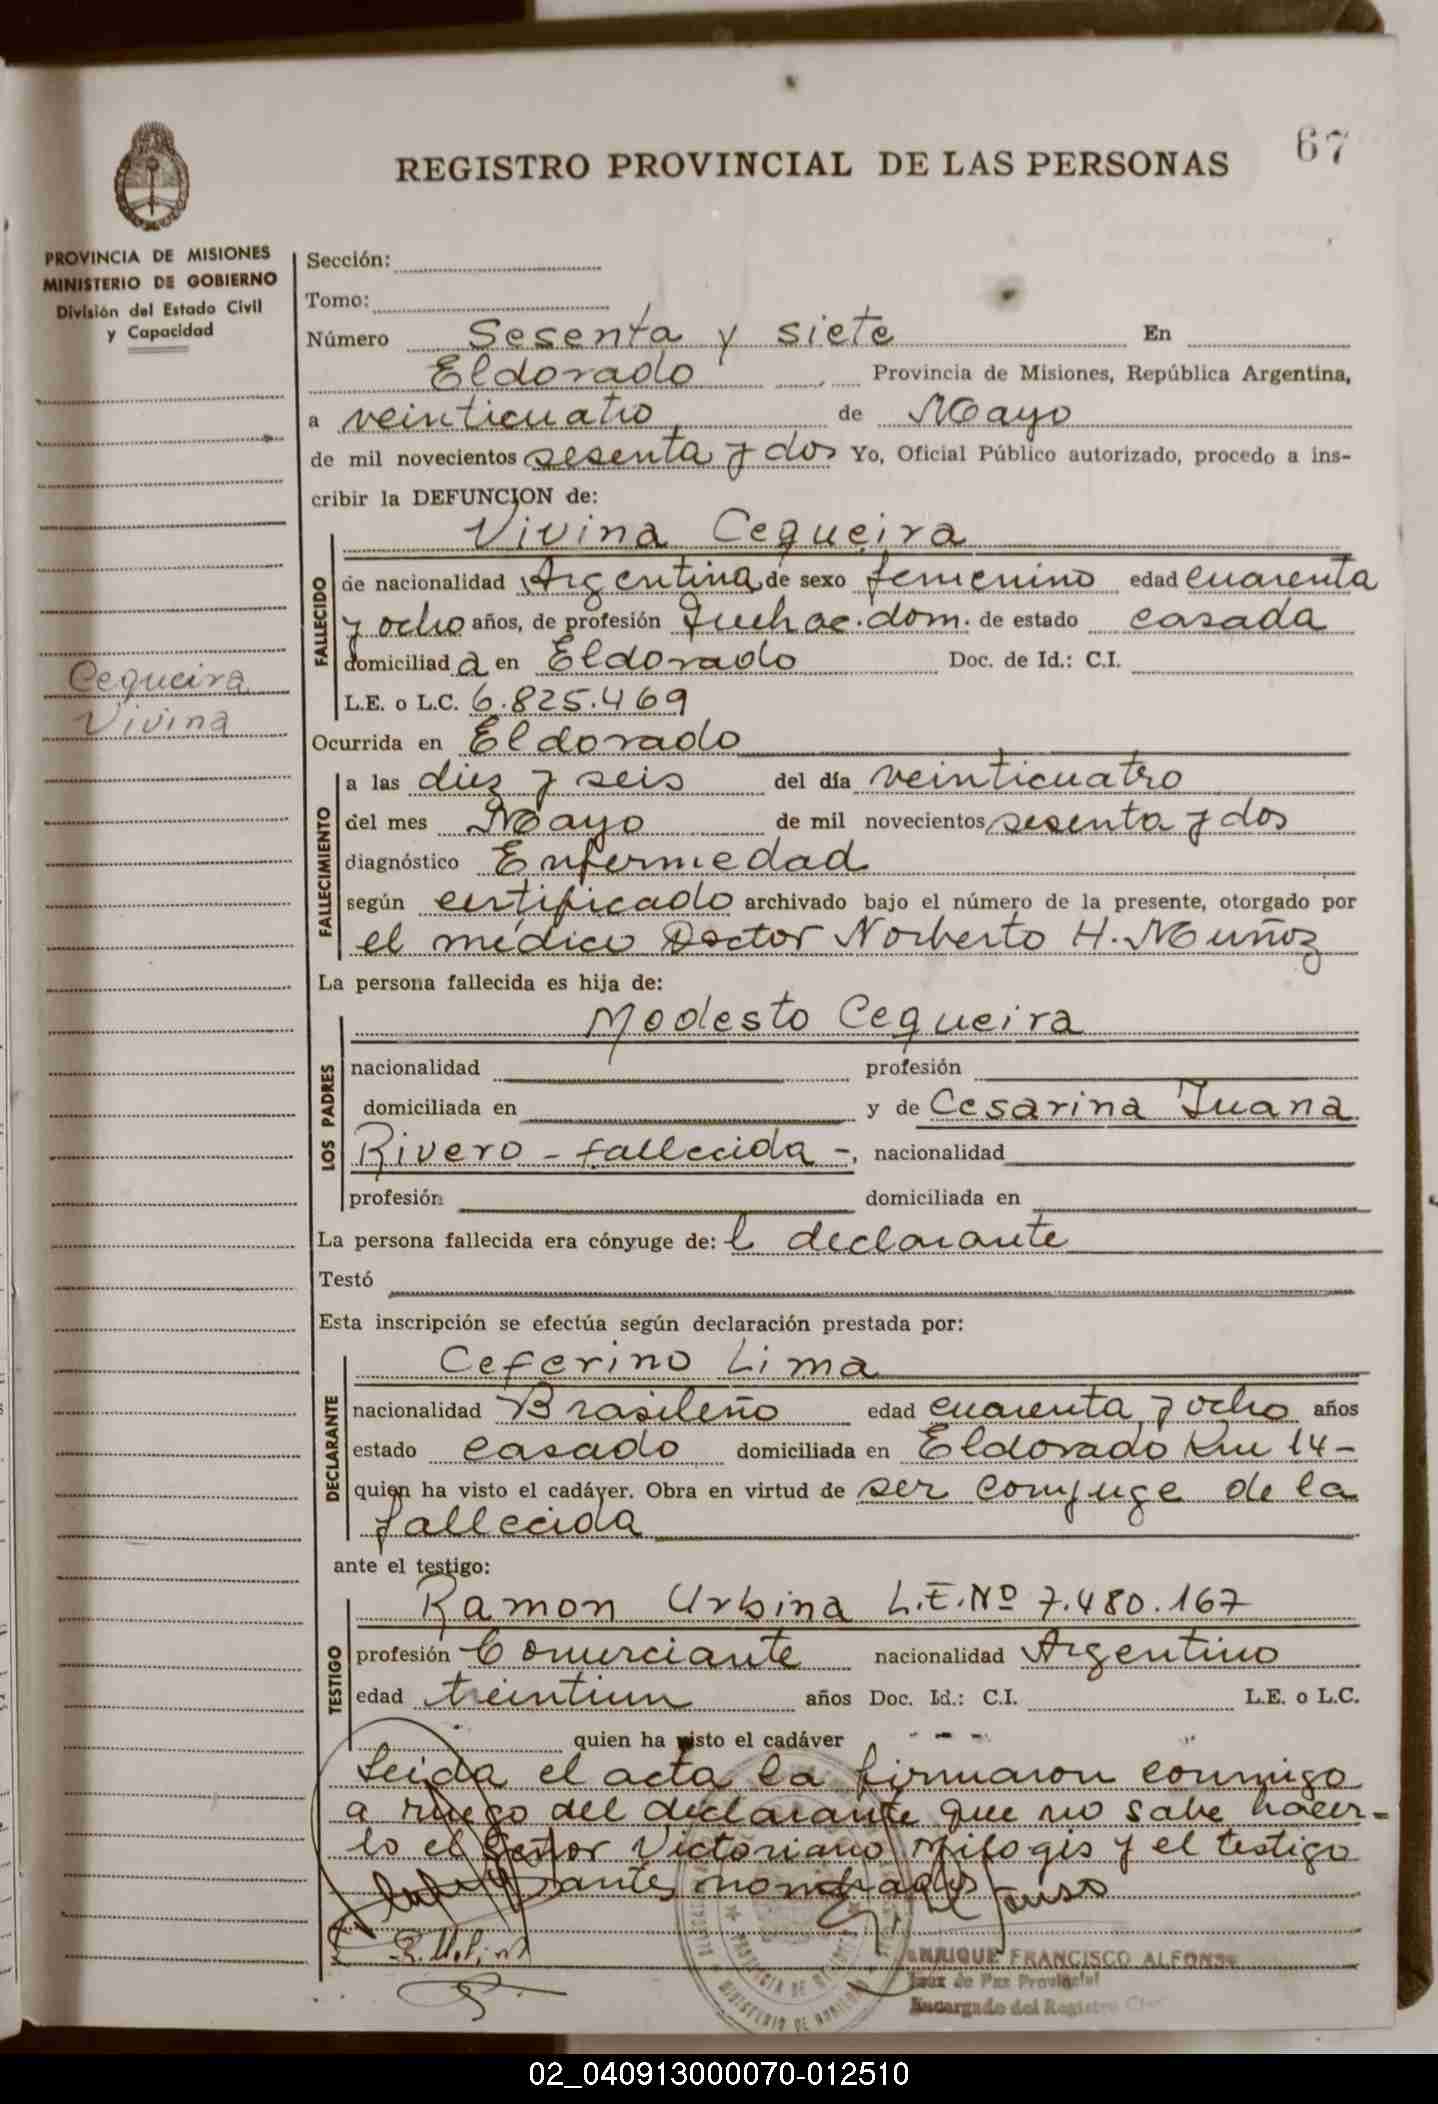 67
REGISTRO PROVINCIAL DE LAS PERSONAS
PROVINCIA DE MISIONES
MINISTERIO DE GOBIERNO
División del Estado Civil
y Capacidad
Cequeira
Vivina
Sección:
Tomo:
Número Sesenta y siete En
Eldorado Provincia de Misiones, República Argentina,
a veinticuatro de Mayo
de mil novecientos sesenta y dos Yo, Oficial Público autorizado, procedo a ins-
cribir la DEFUNCION de:
Vivina Cequeira
FALLECIDO
de nacionalidad Argentina de sexo femenino edad cuarenta
y ocho años, de profesión Quehac. dom. de estado casada
domiciliada en Eldorado Doc. de Id.: C.I.
L.E. o L.C. 6.825.469
Ocurrida en Eldorado
FALLECIMIENTO
a las diez y seis del día veinticuatro
del mes Mayo de mil novecientos sesenta y dos
diagnóstico Enfermedad
según certificado archivado bajo el número de la presente, otorgado por
el médico Doctor Norberto H. Muñoz
La persona fallecida es hija de:
Modesto Cequeira
LOS PADRES
nacionalidad profesión
domiciliada en y de Cesarina Juana
Rivero - fallecida -, nacionalidad
profesión domiciliada en
La persona fallecida era cónyuge de: l declarante
Testó
Esta inscripción se efectúa según declaración prestada por:
Ceferino Lima
DECLARANTE
nacionalidad Brasileño edad cuarenta y ocho años
estado casado domiciliada en Eldorado Km 14-
quien ha visto el cadáver. Obra en virtud de ser conyuge de la
fallecida
ante el testigo:
Ramon Urbina L.E.Nº 7.480.167
TESTIGO
profesión Comerciante nacionalidad Argentino
edad treintiun años Doc. Id.: C.I. L.E. o L.C.
quien ha visto el cadáver
Leida el acta la firmaron conmigo
a ruego del declarante que no sabe hacer-
lo el Señor Victoriano y el testigo
antes nombrados
ENRIQUE FRANCISCO ALFONSO
Juez de Paz Provincial
Encargado del Registro
02_040913000070-012510